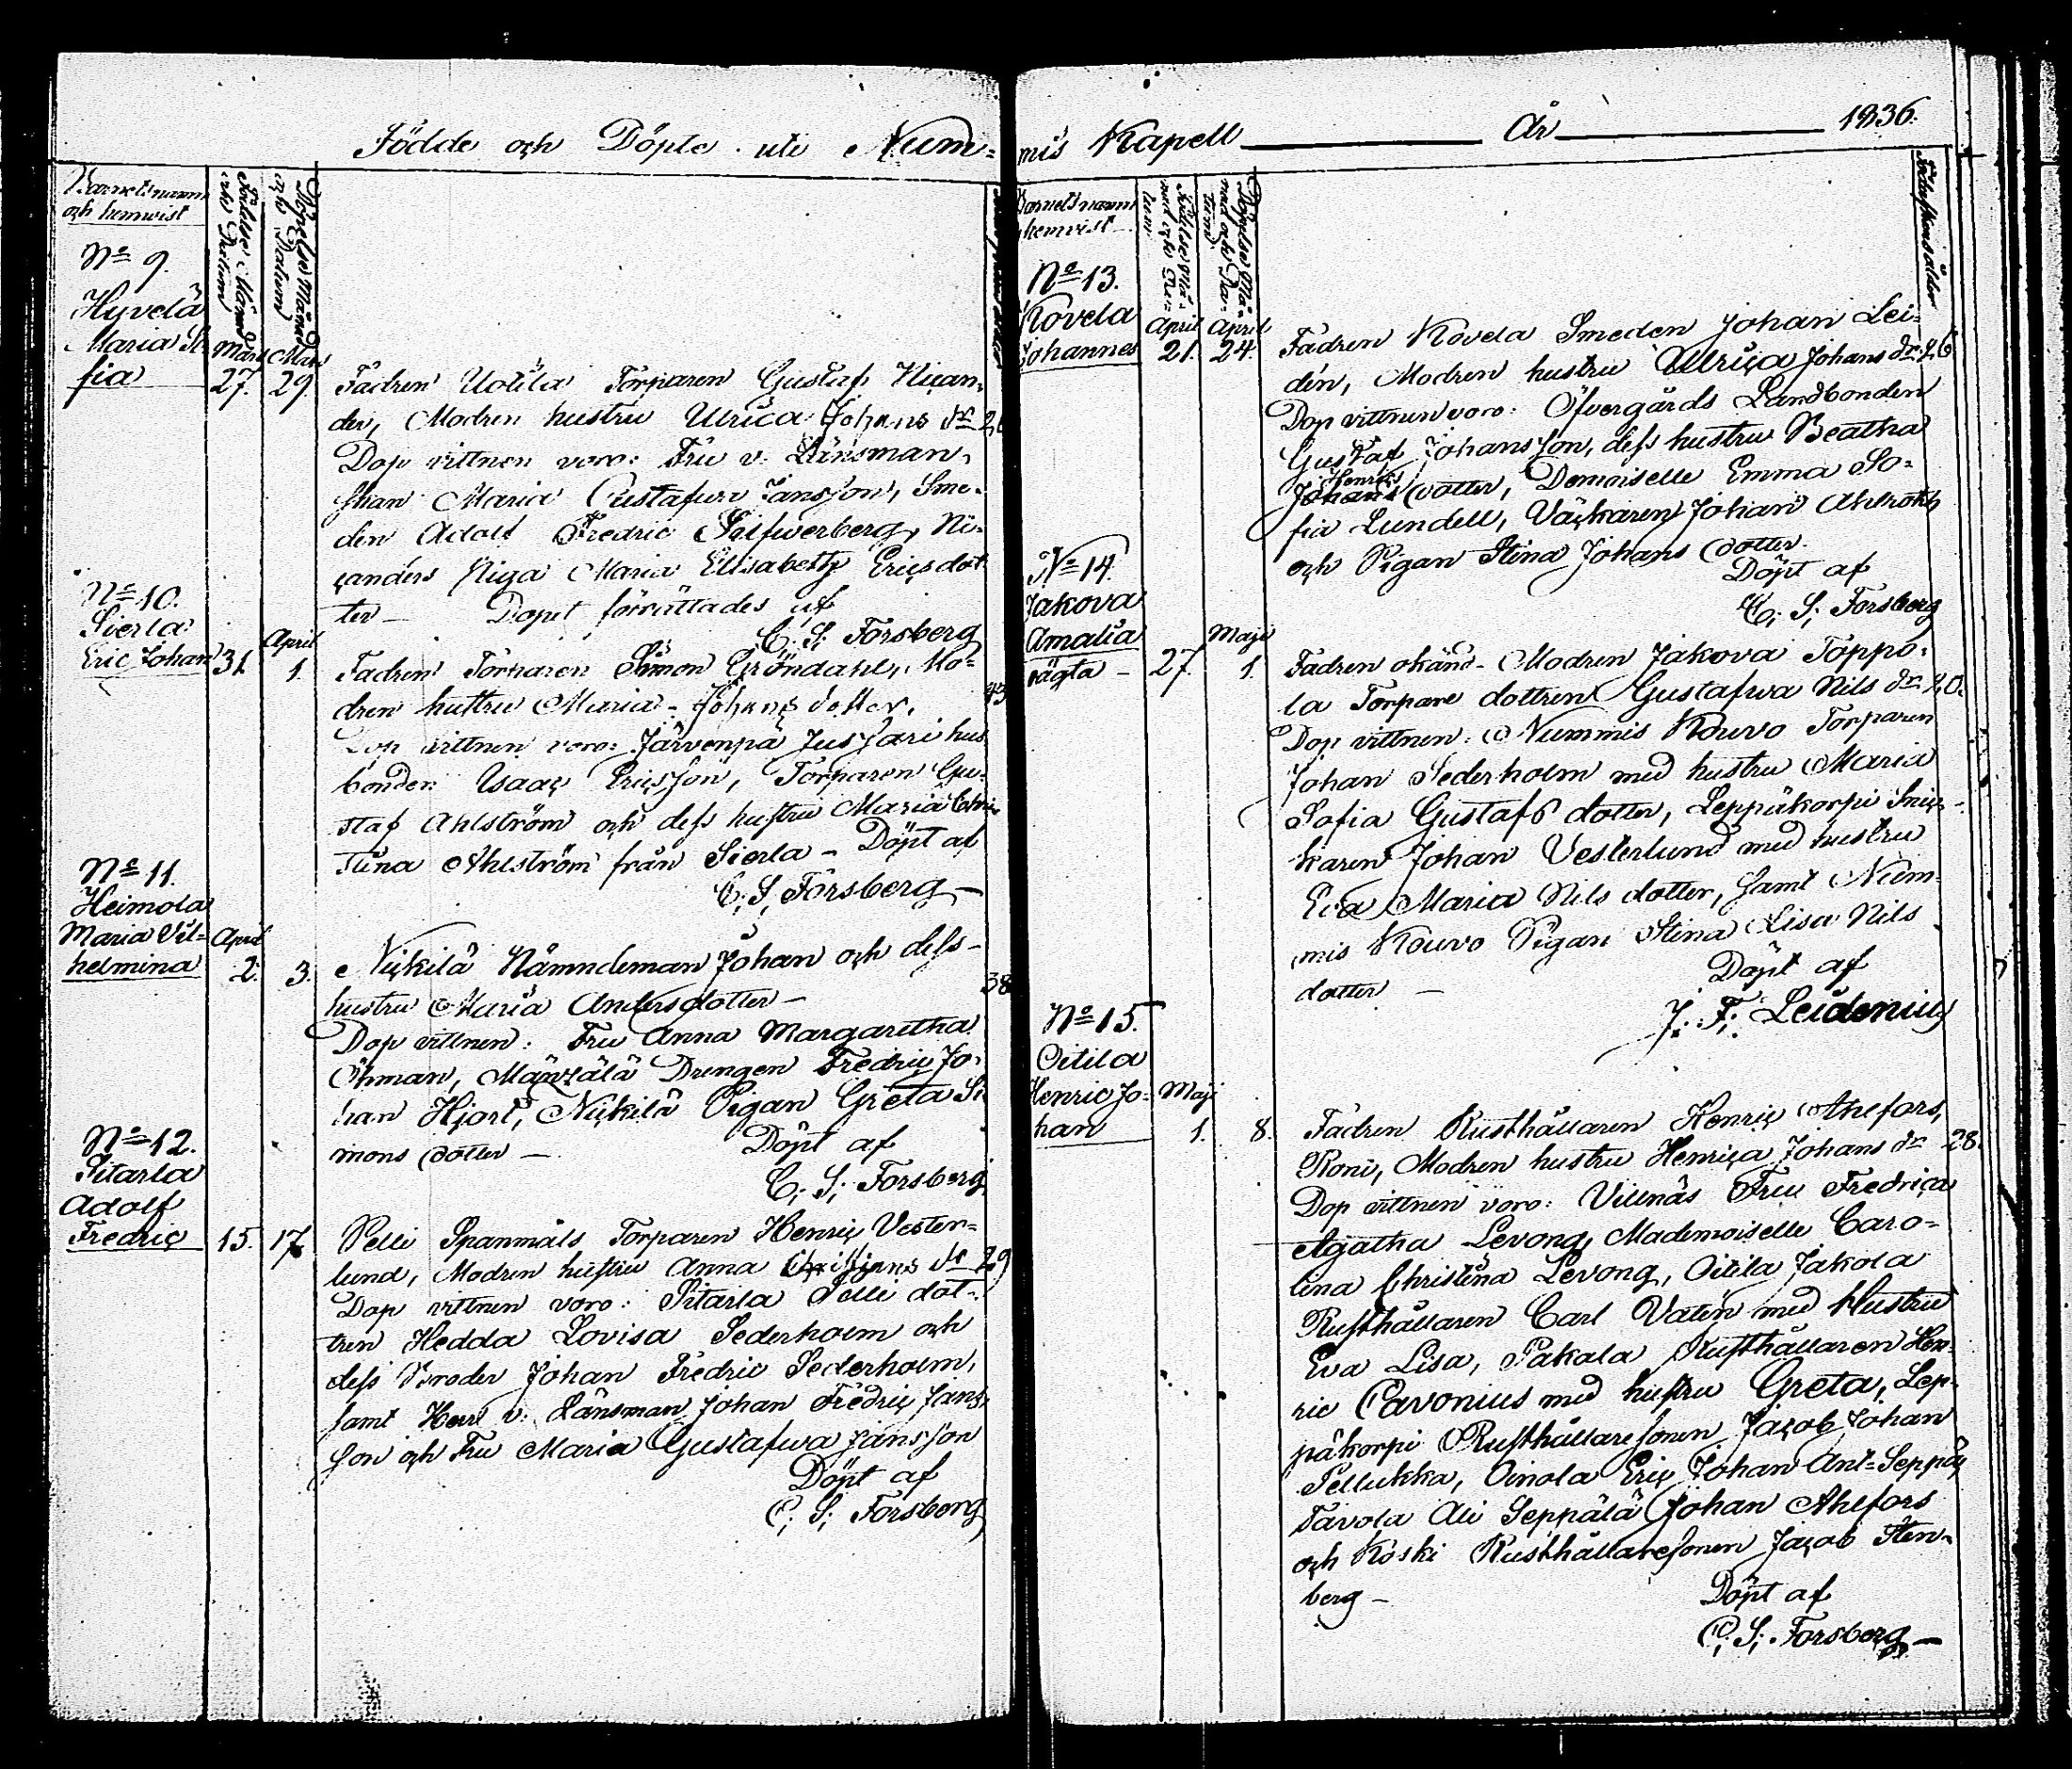 Födde och Döpte uti Num=
Barnets namn
och hemvist
Födelse Månad
och Datum
Döpelse Månad
och Datum
No 9.
Hyvelä
Maria So-
fia
Mars
27.
Mars
29.
Fadren Uotila Torparen Gustaf Nican-
der, Modren hustru Ulrica Johans dr 26
Dop vittnen voro: Fru v. Länsman-
skan Maria Gustafwa Jansson, Sme-
den Adolf Fredric Silfwerberg, Ni-
canders Piga Maria Elisabeth Ericsdot
ter — Dopet förrättades af
C. S. Forsberg
No 10.
Sierla
Eric Johan
31.
April
1.
Fadren Torparen Simon Gröndahl, Mo-
dren hustru Maria Johans dotter. 43
Dop vittnen voro: Järvenpä Jussari hus
bonden Isaac Ericsson, Torparen Gu-
staf Ahlström och dess hustru Maria
Stina Ahlström från Sierla — Döpt af
C. S. Forsberg —
No 11.
Heimola
Maria Vil-
helmina
April
2.
3.
Nickilä Nämndeman Johan och dess-
hustru Maria Andersdotter — 38
Dop vittnen: Fru Anna Margaretha
Öhman, Mänzälä Drengen Fredric Jo-
han Hjort, Nickilä Pigan Greta Si
mons dotter — Döpt af
C. S. Forsberg
No 12.
Pitarla
Adolf
Fredric
15.
17.
Pelli Spanmåls Torparen Henric Vester-
lund, Modren hustru Anna Christians dr 29
Dop vittnen voro: Pitarla Pelli dot-
tren Hedda Lovisa Sederholm och
dess Broder Johan Fredric Sederholm,
samt Herr v. Länsman Johan Fredric Jans-
son och Fru Maria Gustafwa Jansson
Döpt af
C. S. Forsberg
mis Kapell — År — 1836.
Barnets namn
hemvist
Födelse Må-
nad och Da-
tum
Döpelse Må-
nad och Da-
tum
Föräldrens ålder
No 13.
Kovela
Johannes
April
21.
April
24.
Fadren Kovela Smeden Johan Lei-
dén, Modren hustru Ulrica Johans dr. 26
Dop vittnen voro: Öfvergårds Landbonden
Gustaf Johansson, dess hustru Beatha
Henrics
Johans dotter, Demoiselle Emma So-
fia Lundell, Väckaren Johan Ahlroth
och Pigan Stina Johans dotter.
Döpt af
C. S. Forsberg
No 14.
Jakova
Amalia
oägta —
27.
Maji
1.
Fadren okänd — Modren Jakova Toppo-
la Torpare dottren Gustafwa Nils dr 20.
Dop vittnen: Nummis Kouvo Torparen
Johan Sederholm med hustru Maria
Sofia Gustafs dotter, Leppäkorpi Snic-
karen Johan Vesterlund med hustru
Eva Maria Nils dotter, samt Num-
mis Kouvo Pigan Stina Lisa Nils
dotter — Döpt af
J. F. Leidenius
No 15.
Oitila
Henric Jo-
han
Maji
1.
8.
Fadren Rusthållaren Henric Ahefors,
Roni, Modren hustru Henrica Johans dr 28.
Dop vittnen voro: Villnäs Fru Fredrica
Agatha Levong, Mademoiselle Caro-
lina Christina Levong, Oitila Jakola
Rusthållaren Carl Vatin med Hustru
Eva Lisa, Pakala Rusthållaren Hen-
ric Cavonius med hustru Greta, Lep-
päkorpi Rusthållaresonen Jacob Johan
Pellukka, Oinola Eric Johan Ant-Seppä,
Tavola Ali Seppälä Johan Ahefors
och Koski Rusthållaresonen Jacob Sten-
berg — Döpt af
C. S. Forsberg —